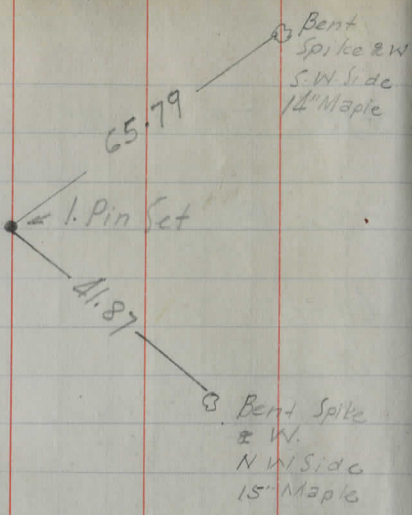 Bent
Spike & W
S.W. Side
14" Maple
65.79
I. Pin Set
41.87
Bent Spike
& W.
N W Side
15" Maple